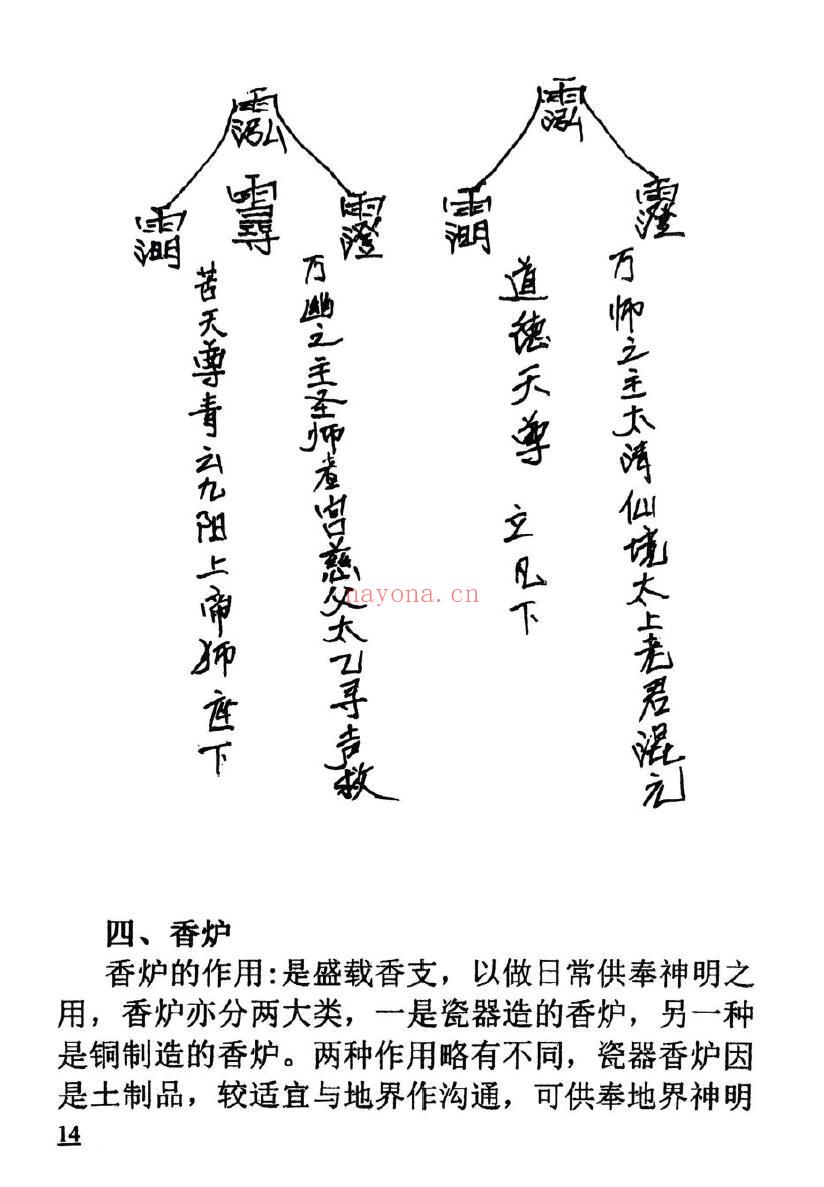 万师之主太清仙境太上老君混元
道德天尊 立凡下
万幽之主圣师宫慈父太乙寻声救
苦天尊青云九阳上帝狮座下
nayona.cn
四、香炉
香炉的作用:是盛载香支,以做日常供奉神明之
用,香炉亦分两大类,一是瓷器造的香炉,另一种
是铜制造的香炉。两种作用略有不同,瓷器香炉因
是土制品,较适宜与地界作沟通,可供奉地界神明
14